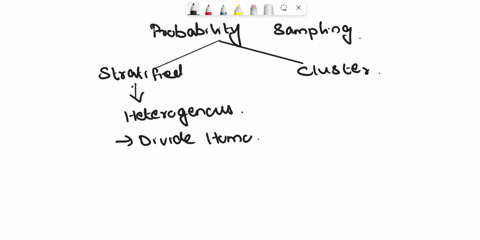 Probability Sampling.
Stratified Cluster.
Heterogenous.
→ Divide Homo.